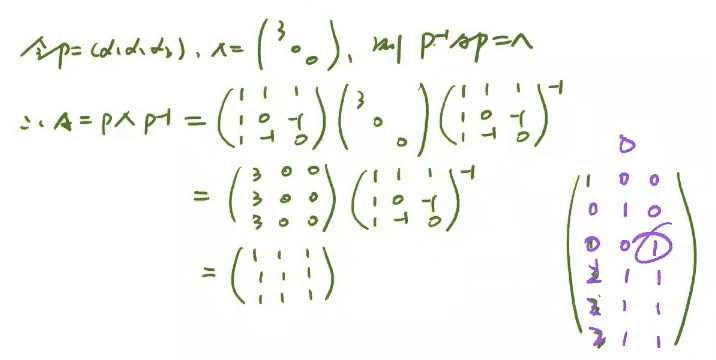 令P=(α₁α₂α₃), Λ=(3 0 0), 则 P⁻¹AP=Λ
∴ A=PΛP⁻¹=(1 1 1 / 1 0 -1 / 1 -1 0)(3 0 0)(1 1 1 / 1 0 -1 / 1 -1 0)⁻¹
=(3 0 0 / 3 0 0 / 3 0 0)(1 1 1 / 1 0 -1 / 1 -1 0)⁻¹
=(1 1 1 / 1 1 1 / 1 1 1)
0
1 0 0
0 1 0
0 0 1
1 1
1 1
1 1